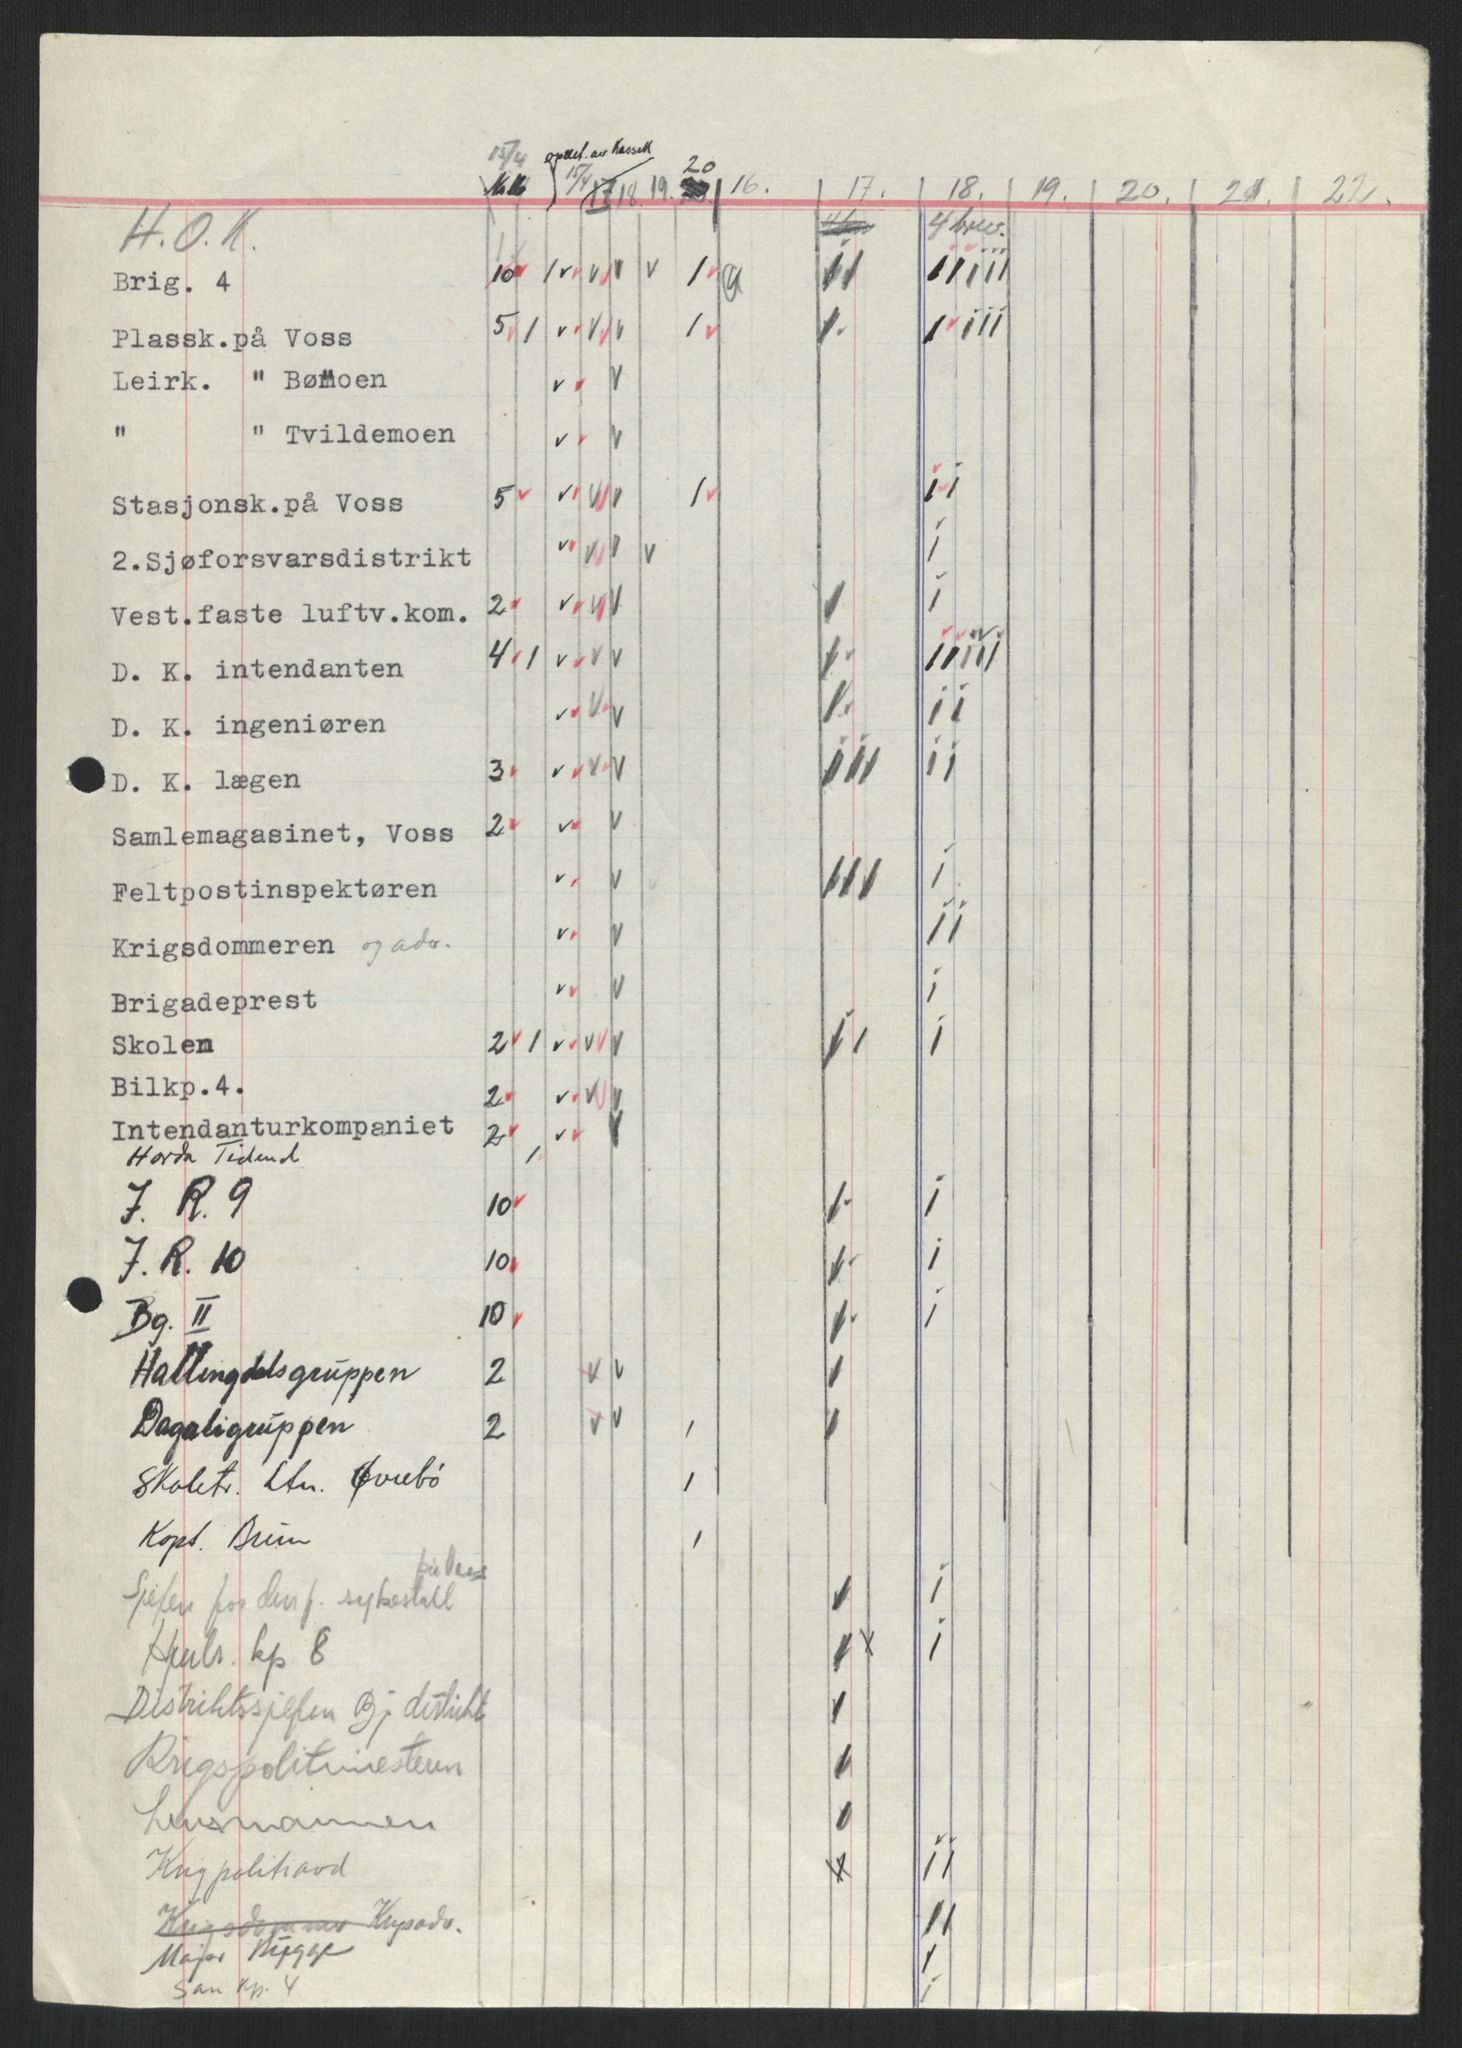 15/4 opdel. av Kassell 20
15/4 17 18. 19. 16. 17. 18. 19. 20. 21. 22.
H.O.K. 4 brev.
Brig. 4 10 v 1 v v v v v v 1 v
Plassk.på Voss 5 v 1 v v v v v 1 v
Leirk. " Bømoen v v v
" " Tvildemoen v v v
Stasjonsk.på Voss 5 v v v v v v 1 v
2.Sjøforsvarsdistrikt v v v v v v
Vest.faste luftv.kom. 2 v v v v v v
D. K. intendanten 4 v 1 v v v v
D. K. ingeniøren v v v v v
D. K. lægen 3 v v v v v v
Samlemagasinet, Voss 2 v v v v
Feltpostinspektøren v v v
Krigsdommeren og adv. v v v
Brigadeprest v v v
Skolen 2 v 1 v v v v v
Bilkp.4. 2 v v v v v v
Intendanturkompaniet 2 v v v v
Horda Tidend 1
J. R. 9 10 v
J. R. 10 10 v
Bg. II 10 v
Hallingdalsgruppen 2 v v
Dagaligruppen 2 v v 1
Skoletr. Ltn. Øvrebö 1
Kapt. Brun 1
for Voss
Sjefen for den f. sykestall
Hjulr. kp 8
Distriktssjefen Bj. distrikt
Krigspolitimesteren
Lensmannen
Krigpolitiavd
Krigsdommer Krpadv.
Major Bügge
San kp. 4